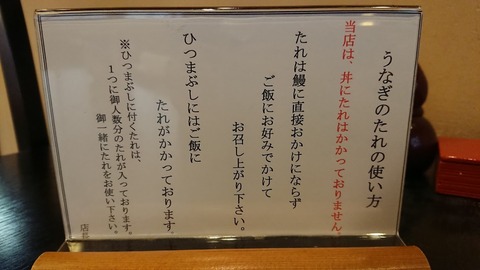 うなぎのたれの使い方
当店は、丼にたれはかかっておりません。
たれは鰻に直接おかけにならず
ご飯にお好みでかけて
お召し上がり下さい。
ひつまぶしにはご飯に
たれがかかっております。
※ひつまぶしに付くたれは、
1つに御人数分のたれが入っております。
御一緒にたれをお使い下さい。
店